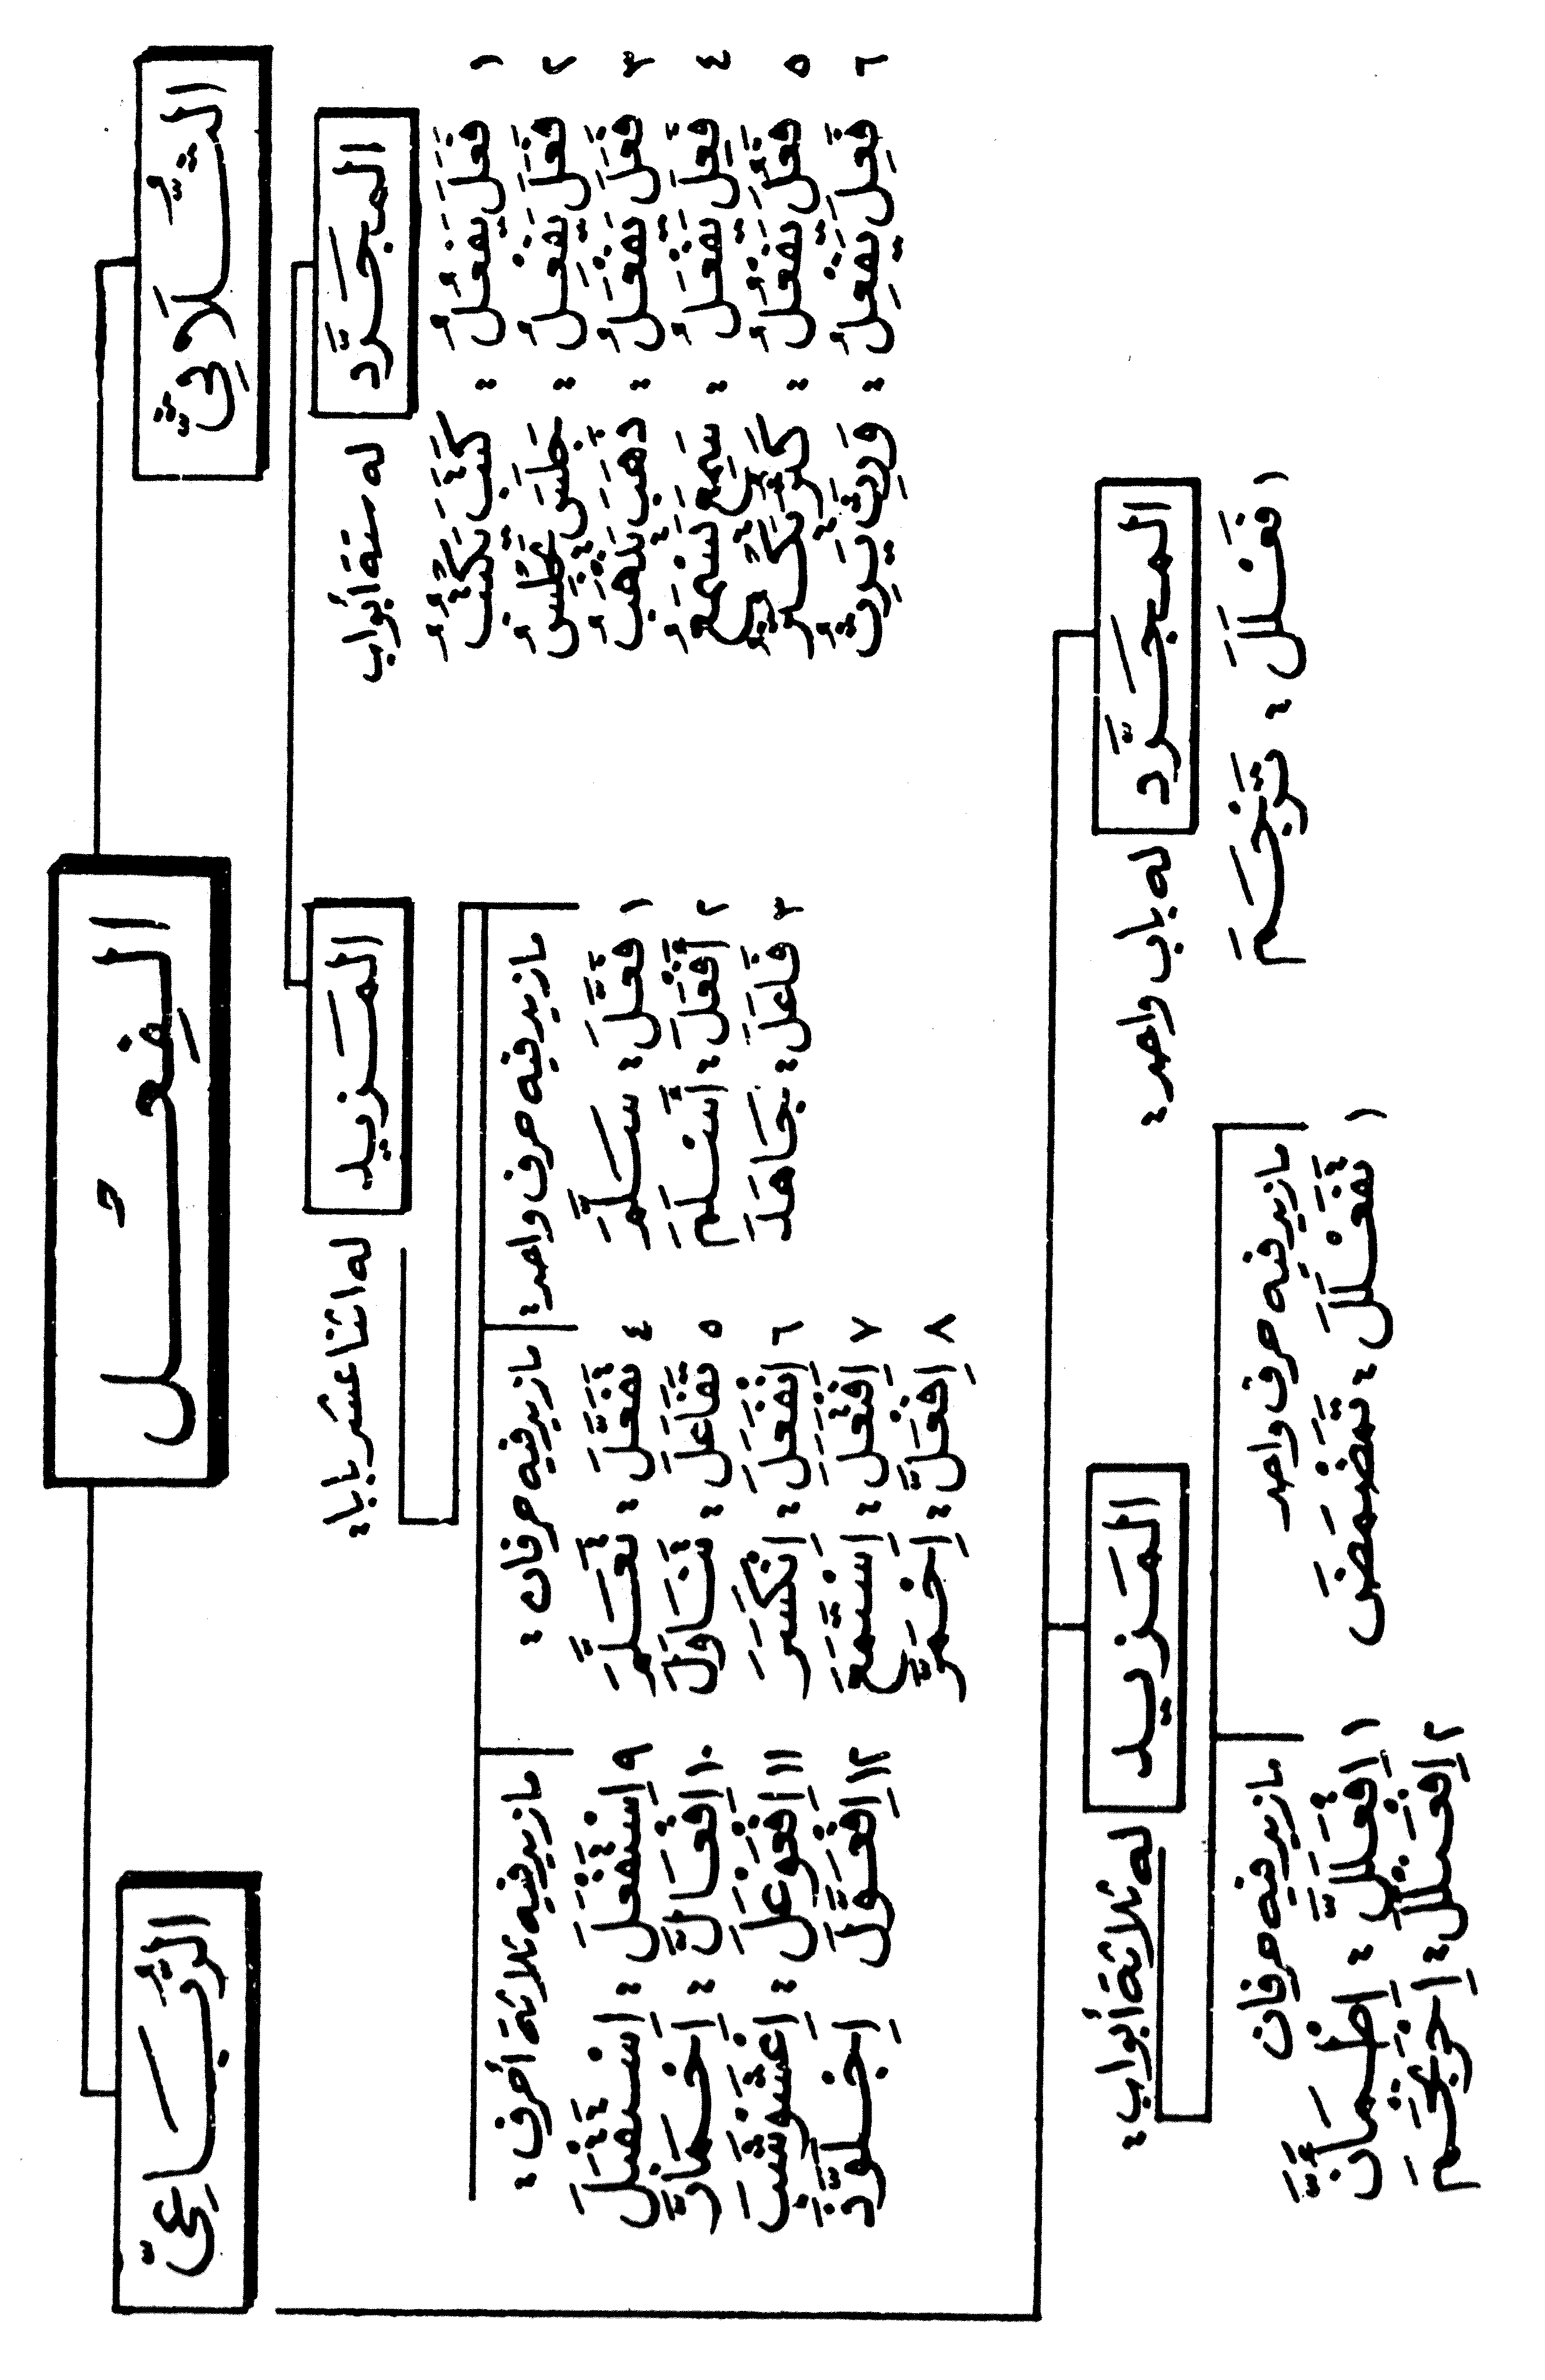 الفِعْل
الثُّلَاثِيّ
المجَرَّد
له ستة أبواب
١ فَعَلَ يَفْعُلُ : كَتَبَ يَكْتُبُ
٢ فَعَلَ يَفْعِلُ : جَلَسَ يَجْلِسُ
٣ فَعَلَ يَفْعَلُ : ذَهَبَ يَذْهَبُ
٤ فَعِلَ يَفْعَلُ : سَمِعَ يَسْمَعُ
٥ فَعُلَ يَفْعُلُ : كَثُرَ يَكْثُرُ
٦ فَعِلَ يَفْعِلُ : وَرِثَ يَرِثُ
المَزيد
له اثنا عشر بابا :
مازيد فيه حرف واحد :
١ فَعَّلَ : سَلَّمَ
٢ أَفْعَلَ : أَسْلَمَ
٣ فَاعَلَ : جَاهَدَ
مازيد فيه حرفان :
٤ تَفَعَّلَ : تَعَلَّمَ
٥ تَفَاعَلَ : تَنَاوَلَ
٦ اِنْفَعَلَ : اِنْكَسَرَ
٧ اِفْتَعَلَ : اِسْتَمَعَ
٨ اِفْعَلَّ : اِحْمَرَّ
مازيد فيه ثلاثة أحرف :
٩ اِسْتَفْعَلَ : اِسْتَقْبَلَ
١٠ اِفْعَالَّ : اِحْمَارَّ
١١ اِفْعَوْعَلَ : اِعْشَوْشَبَ
١٢ اِفْعَوَّلَ اِجْلَوَّذَ
الرُّبَاعِيّ
المجَرَّد
له باب واحد :
١ فَعْلَلَ : تَرْجَمَ
المَزيد
له ثلاثة أبواب :
مازيد فيه حرف واحد
١ تَفَعْلَلَ : تَمَضْمَضَ
مازيد فيه حرفان
١ اِفْعَلَلَّ : اِطْمَأَنَّ
٢ اِفْعَنْلَلَ : اِحْرَنْجَمَ